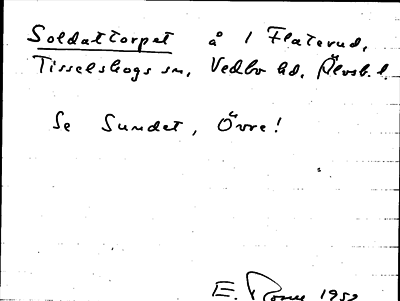 Soldattorpet å 1 Flaterud,
Tisselskogs sn, Vedbo hd, Älvsb. l.
Se Sundet, Övre!
E. 1952